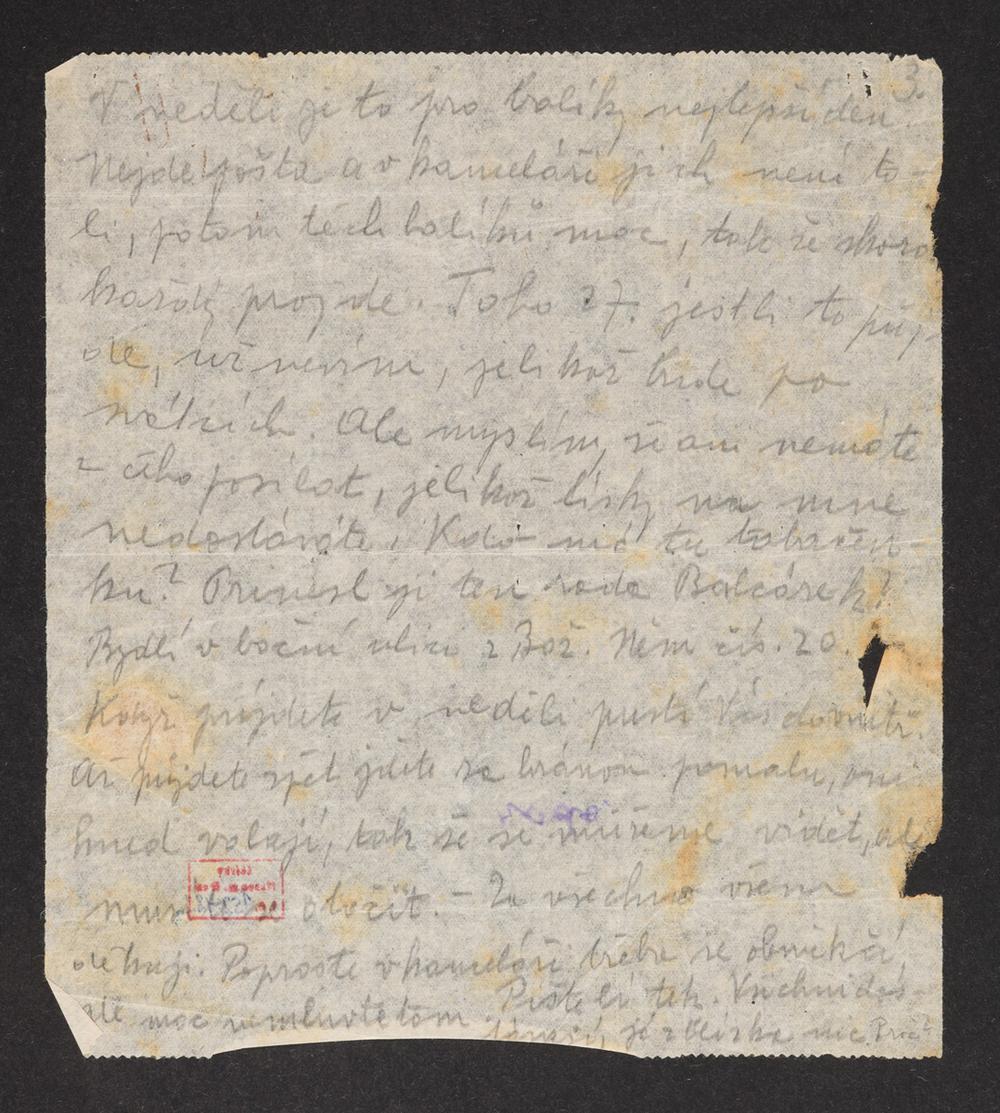 3.
V neděli je to pro balíky nejlepší den.
Nejde pošta a v kanceláři jich není to-
li, potom těch balíků moc, tak že skoro
každý projde. Toho 27. jestli to půj-
de, už nevím, jelikož bude po
svátcích. Ale myslím, že ani nemáte
z čeho posílat, jelikož lísky na mne
nedostáváte. Kdo má tu tabačen-
ku? Prinesl ji ten rada Balcárek?
Bydlí v boční ulici z Bož. Něm čís. 20.
Když prijdete v neděli pustí Vás dovnitř.
Až půjdete zpět jděte za bránou pomalu, oni
hned volají, tak že se můžeme vidět, ale
otočit. – Za všechno všem
děkuji. Poproste v kanceláři třeba se obměkčí,
moc nemluvte o tom. Pište li tak. Všichni
je z blízka nic. Proč?